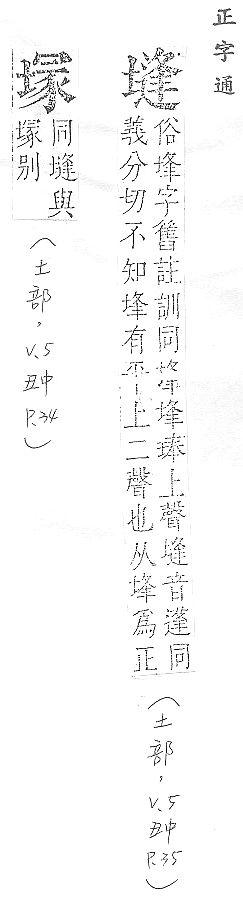 正字通
塳
俗埄字舊註訓同埄琫上聲塳音蓬同
義分切不知埄有平上二聲也从埄爲正
(土部,v.5丑中P.35)
塜
同塳與
塚别
(土部,v.5丑中P.34)